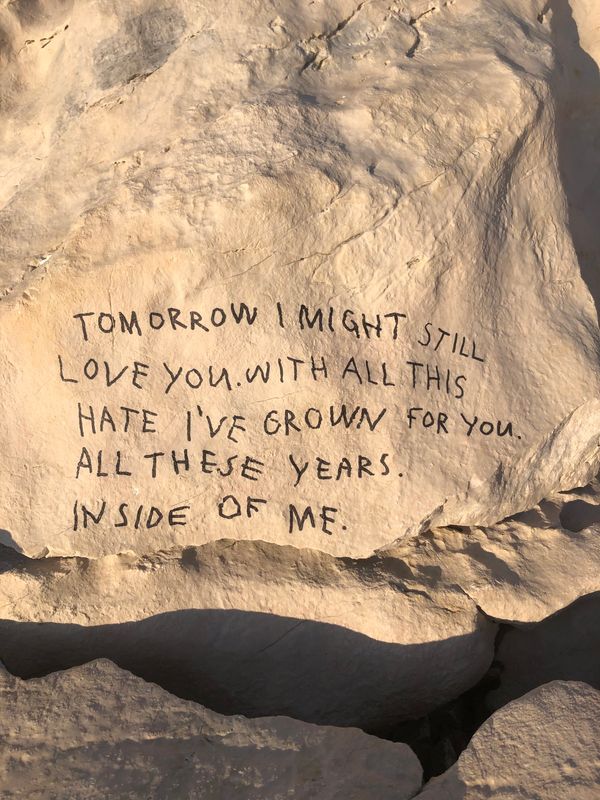 TOMORROW I MIGHT STILL
LOVE YOU. WITH ALL THIS
HATE I'VE GROWN FOR YOU.
ALL THESE YEARS.
INSIDE OF ME.